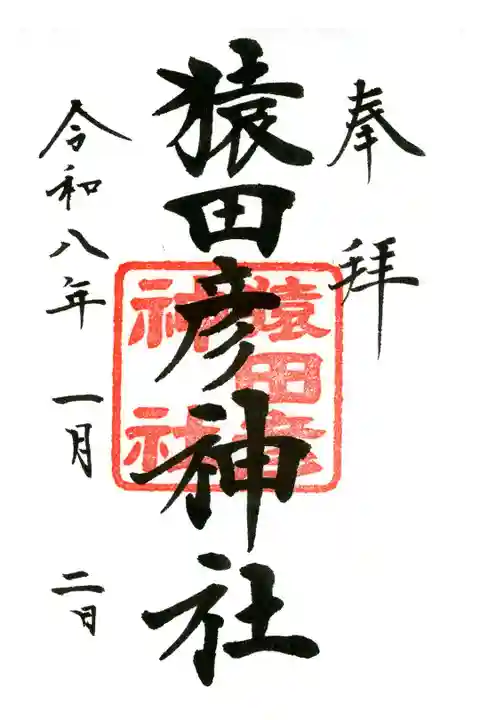 奉拝
猿田彦神社
猿田彦
神社
令和八年 一月 二日